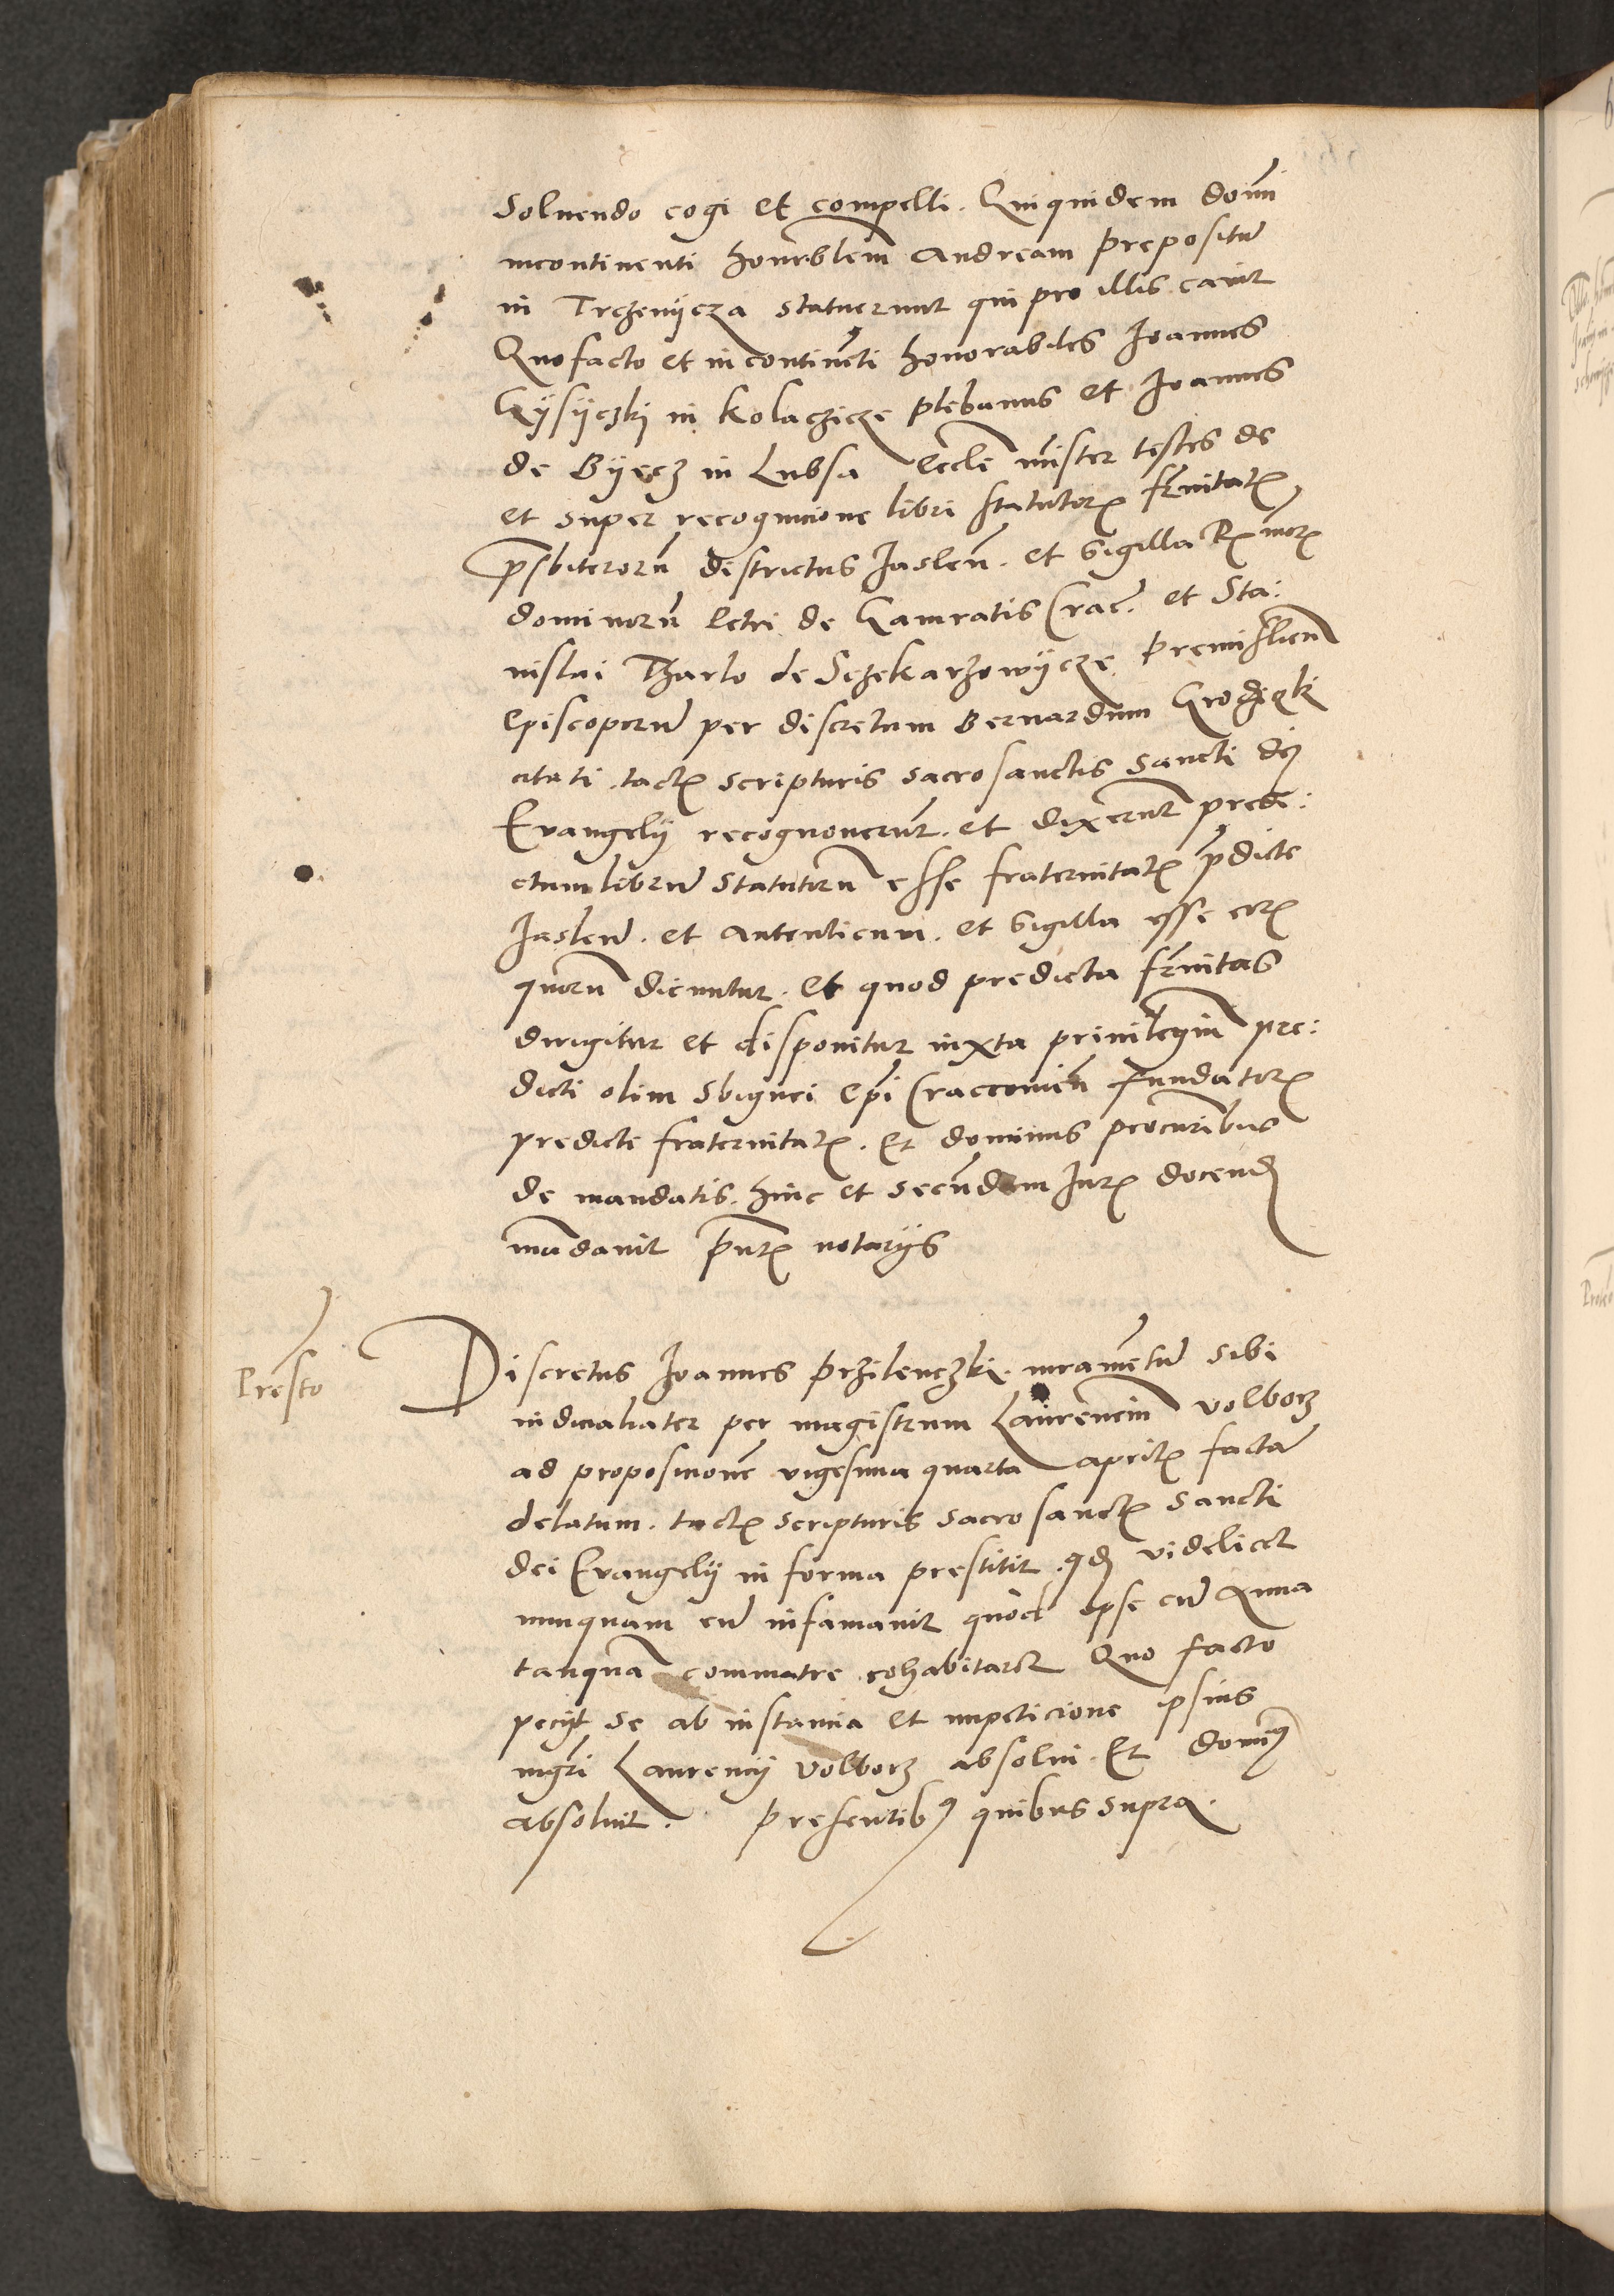 Soluendo cogi et compelli. Quiquidem domi
incontinenti honorblem Andream prepositu
in Trczenycza statuerunt qui pro illis cavit
Quo facto et in continenti honorabiles Joannes
Gysyczkj in Kolaczicze plebanus et Joannes
de Byecz in Lubsa eccle mister testes de
et super recognicione libri statutor frnitat
prsbiteroru districtus Jaslen. et sigilla R mor
dominoru Petri de Gamratis Crac. et Sta:
nislai Tharlo de Sczekarzowycze Premislien
Episcoporu per discretum Bernardum Grodzek
citati. tact scripturis sacrosanctis sancti dej
Evangelij recognouerut. et dixerunt predi:
ctum libru statutoru esse fraternitat pdicte
Jaslen. et autenticum. et sigilla esse eor
quoru dicuntur. et quod predicta frnitas
dirigitur et disponitur iuxta privilegiu pre:
dicti olim Sbignei Epi Craccouien fundator
predicte fraternitat. Et dominus procuribus
de mandatis. hinc et secundam Jur docend
mandauit pntr notarijs
Presto
Discretus Joannes Przilenczki. iurametu sibi
iudicialiter per magistrum Laurenciu Volborz
ad proposicione vigesima quarta April facta
delatum. tact scripturis sacro sanct sancti
dei Evangelij in forma prestitit. qd videlicet
nunquam eu infamauit quod ipse cu Anna
tanqua commatre cohabitaret Quo facto
peciyt se ab instancia et impeticione ipsius
mgri Laurencij Volborz absolui. Et domin9
absoluit. Presentib9 quibus supra.